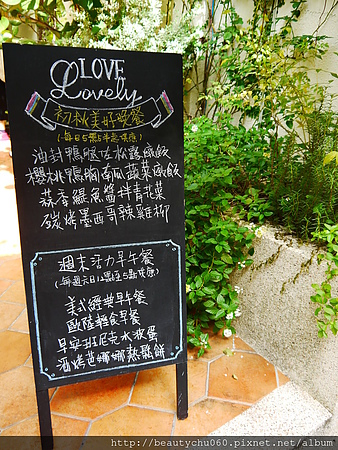 LOVE
Lovely
初秋美好晚餐
油封鴨腿佐松露燉飯
櫻桃鴨胸南瓜蔬菜燉飯
蒜香鯷魚醬拌青花菜
碳烤墨西哥辣雞柳
週末活力早午餐
美式經典早午餐
歐陸輕食早餐
早安班尼克水波蛋
酒烤芭娜娜熱鬆餅
http://beautychu060.pixnet.net/album